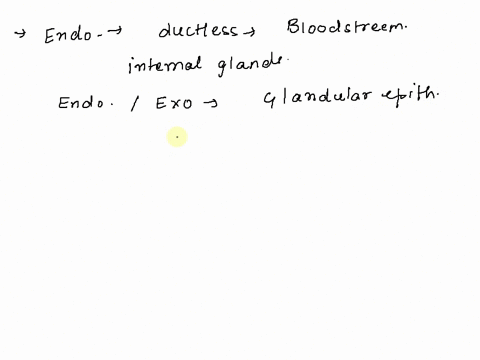 → Endo. → ductless → Bloodstreem.
internal glands.
Endo. / Exo → Glandular epith.